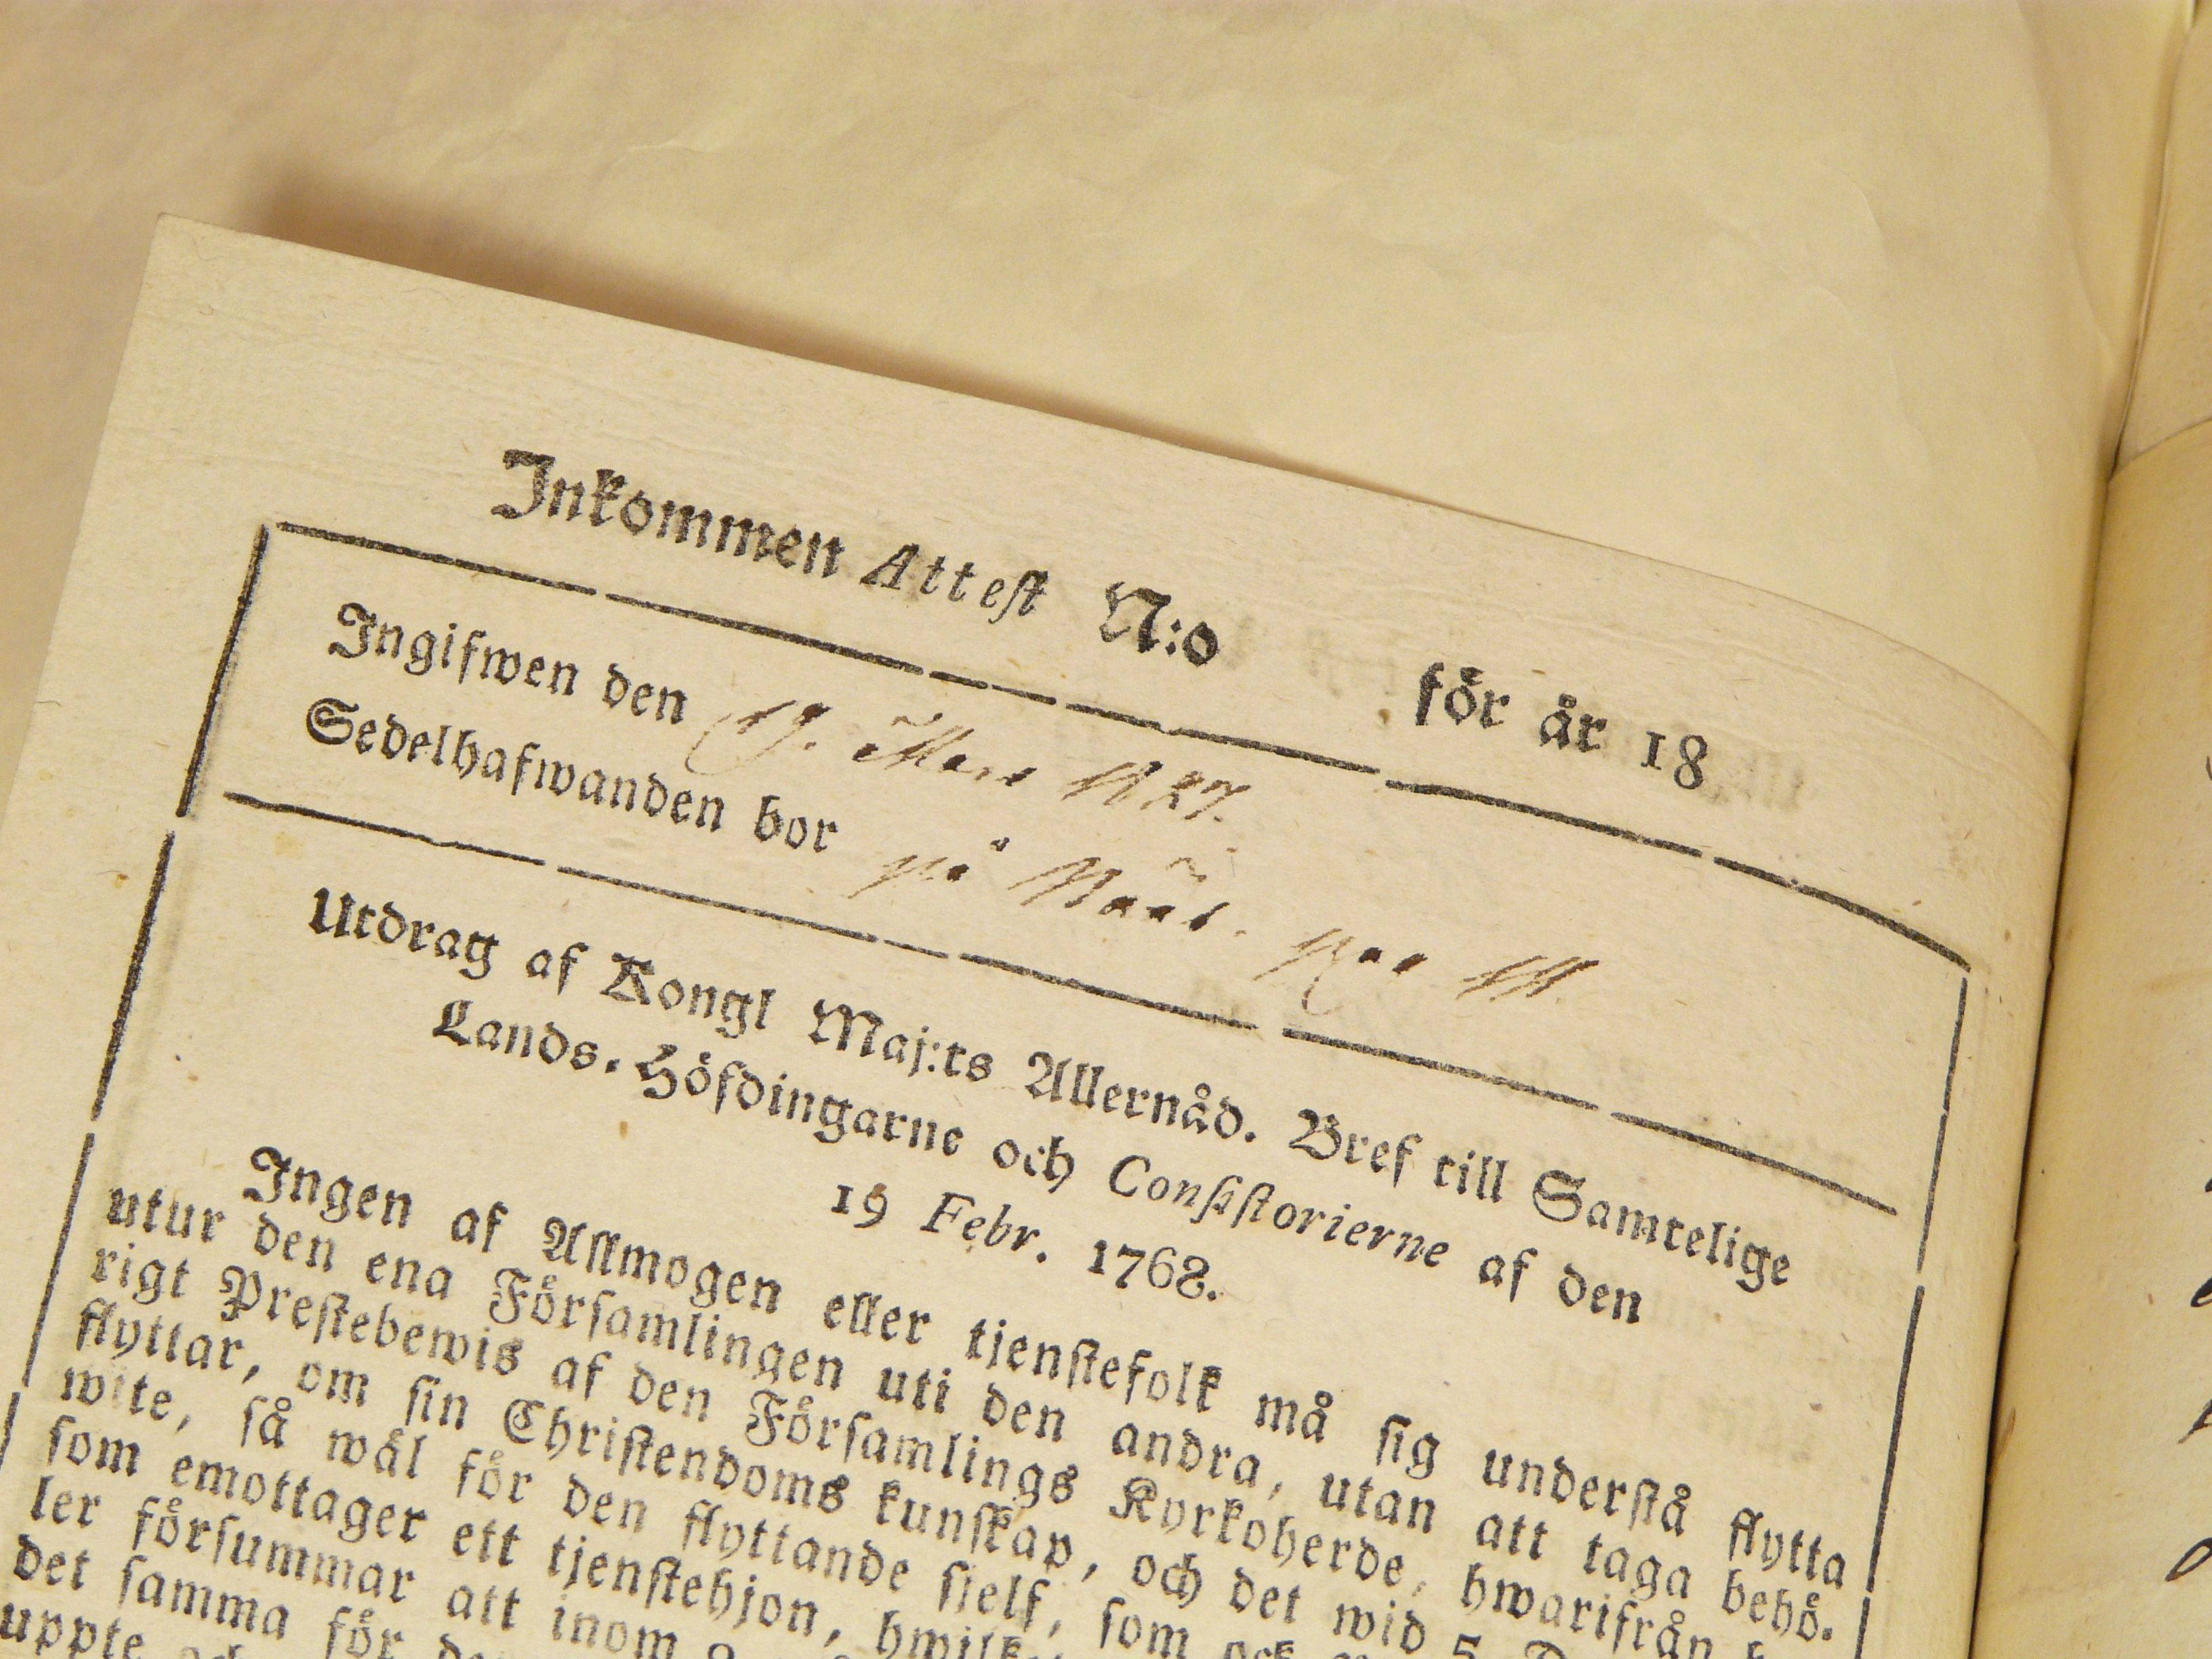 Inkommen Attest N:o för år 18
Ingifwen den 19. Mars 1827.
Sedelhafwanden bor på
Utdrag af Kongl Maj:ts Allernåd. Bref till Samtelige
Lands-Höfdingarne och Consistorierne af den
19 Febr. 1768.
Ingen af Allmogen eller tjenstefolk må sig understå flytta
utur den ena Församlingen uti den andra, utan att taga behö-
rigt Prestebewis af den Församlings Kyrkoherde, hwarifrån
flyttar, om sin Christendoms kunskap, och det wid 5
wite, så wäl för den flyttande sjelf, som ock
som emottager ett tjenstehjon,
ler försummar att inom
det samma för
uppte